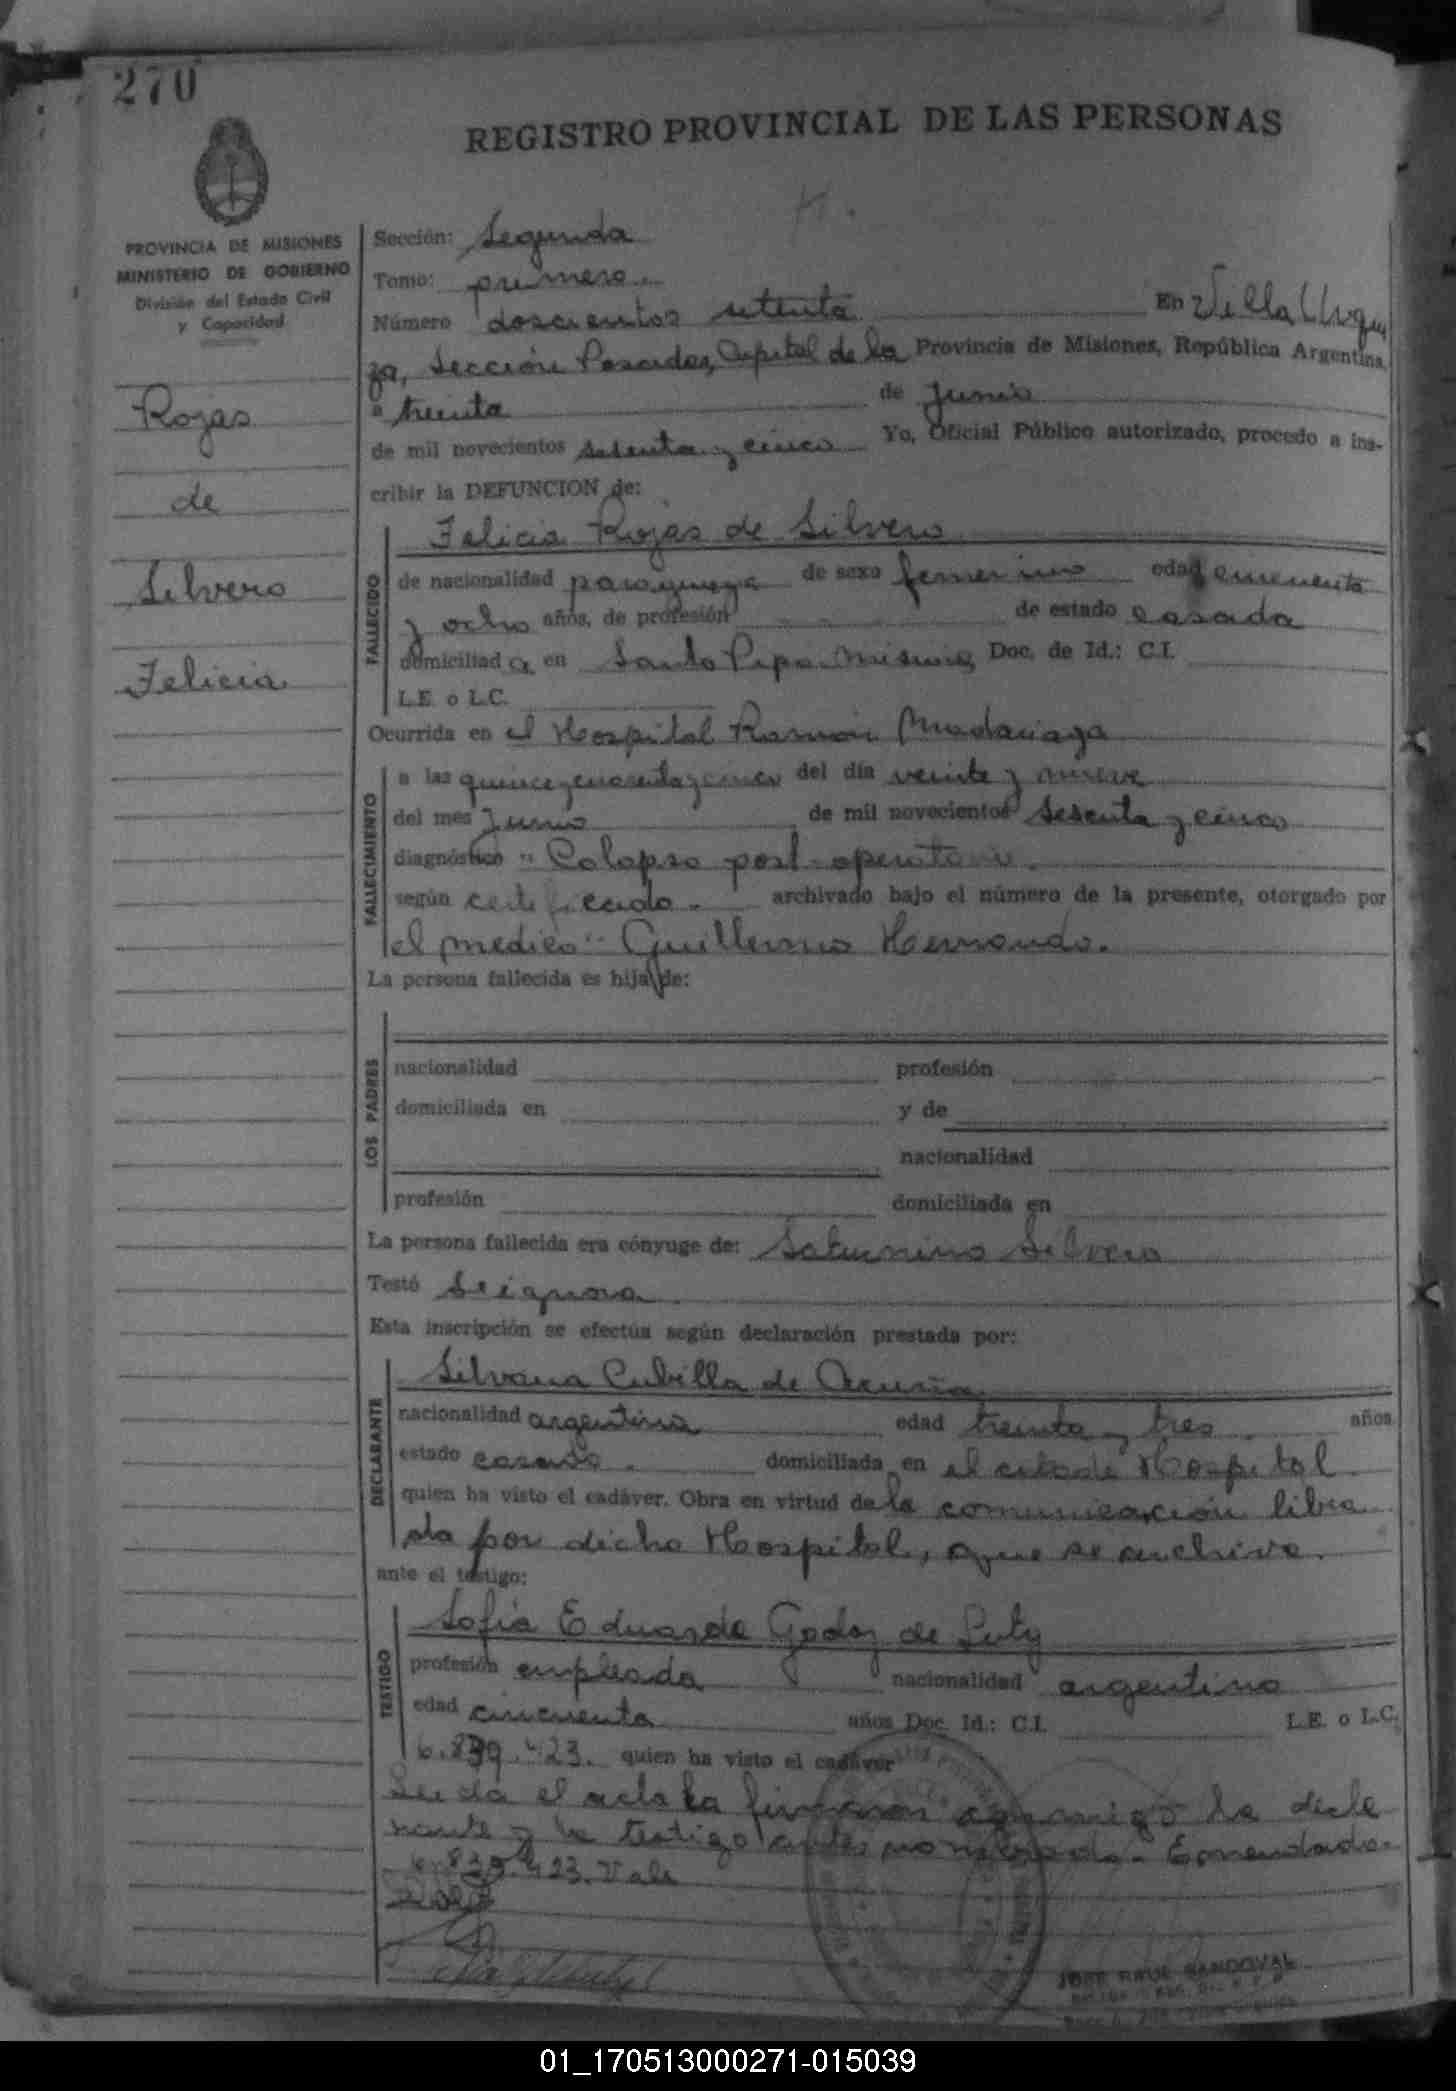 270
REGISTRO PROVINCIAL DE LAS PERSONAS
PROVINCIA DE MISIONES
MINISTERIO DE GOBIERNO
División del Estado Civil
y Capacidad
Rojas
de
Silvero
Felicia
Sección: Segunda
Tomo: primero.
Número doscientos setenta En Villa Urqui
za, Sección Posadas, Capital de la Provincia de Misiones, República Argentina,
a treinta de Junio
de mil novecientos sesenta y cinco Yo, Oficial Público autorizado, procedo a ins-
cribir la DEFUNCION de:
FALLECIDO
Felicia Rojas de Silvero
de nacionalidad paraguaya de sexo femenino edad cincuenta
y ocho años, de profesión de estado casada
domiciliada en Santo Pipo Misiones Doc. de Id.: C.I.
L.E. o L.C.
Ocurrida en el Hospital Ramón Madariaga
FALLECIMIENTO
a las quince y cuarenta y cinco del día veinte y nueve
del mes Junio de mil novecientos sesenta y cinco
diagnóstico "Colapso post-operatorio.
según certificado. archivado bajo el número de la presente, otorgado por
el medico: Guillermo Hernando.
La persona fallecida es hija de:
LOS PADRES
nacionalidad profesión
domiciliada en y de
nacionalidad
profesión domiciliada en
La persona fallecida era cónyuge de: Saturnino Silvero
Testó Se ignora
Esta inscripción se efectúa según declaración prestada por:
DECLARANTE
Silvana Cubilla de Acuña
nacionalidad argentina edad treinta y tres. años
estado casada. domiciliada en el citado Hospital
quien ha visto el cadáver. Obra en virtud de la comunicación libra
da por dicho Hospital, que se archiva.
ante el testigo:
TESTIGO
Sofía Eduarda Godoy de
profesión empleada nacionalidad argentina
edad cincuenta años Doc. Id.: C.I. L.E. o L.C.
6.839.423. quien ha visto el cadáver
Leida el acta la firmaron conmigo la decla
rante y la testigo antes nombrada. Enmendado:
6.839.423. Vale
JOSE RAUL SANDOVAL
01_170513000271-015039